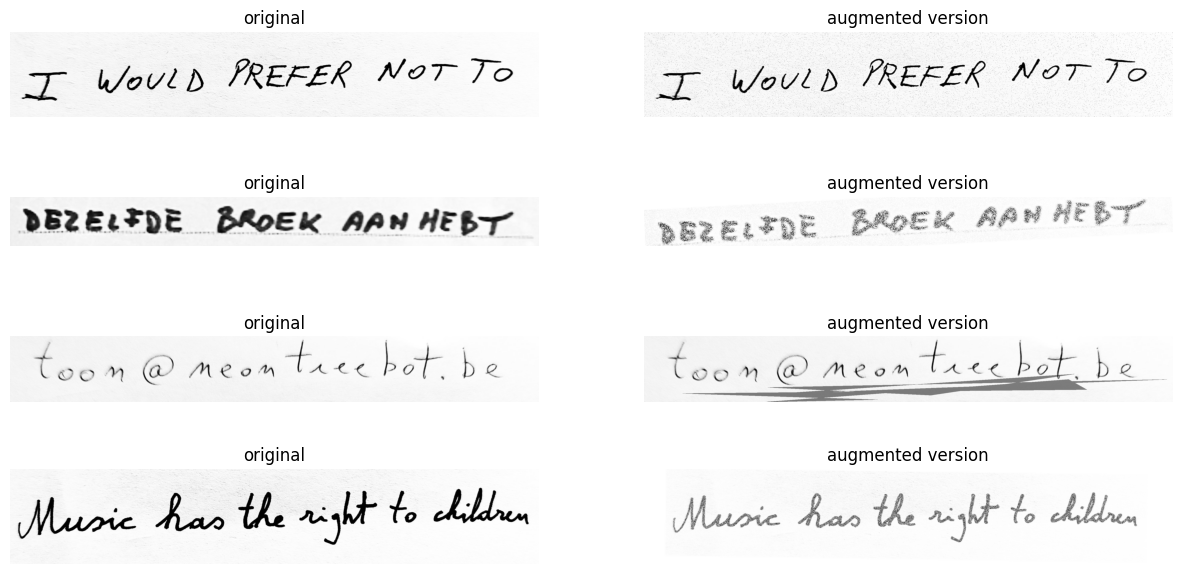 original augmented version
I WOULD PREFER NOT TO I WOULD PREFER NOT TO
original augmented version
DEZELFDE BROEK AAN HEBT DEZELFDE BROEK AAN HEBT
original augmented version
toon@neontreebot.be toon@neontreebot.be
original augmented version
Music has the right to children Music has the right to children